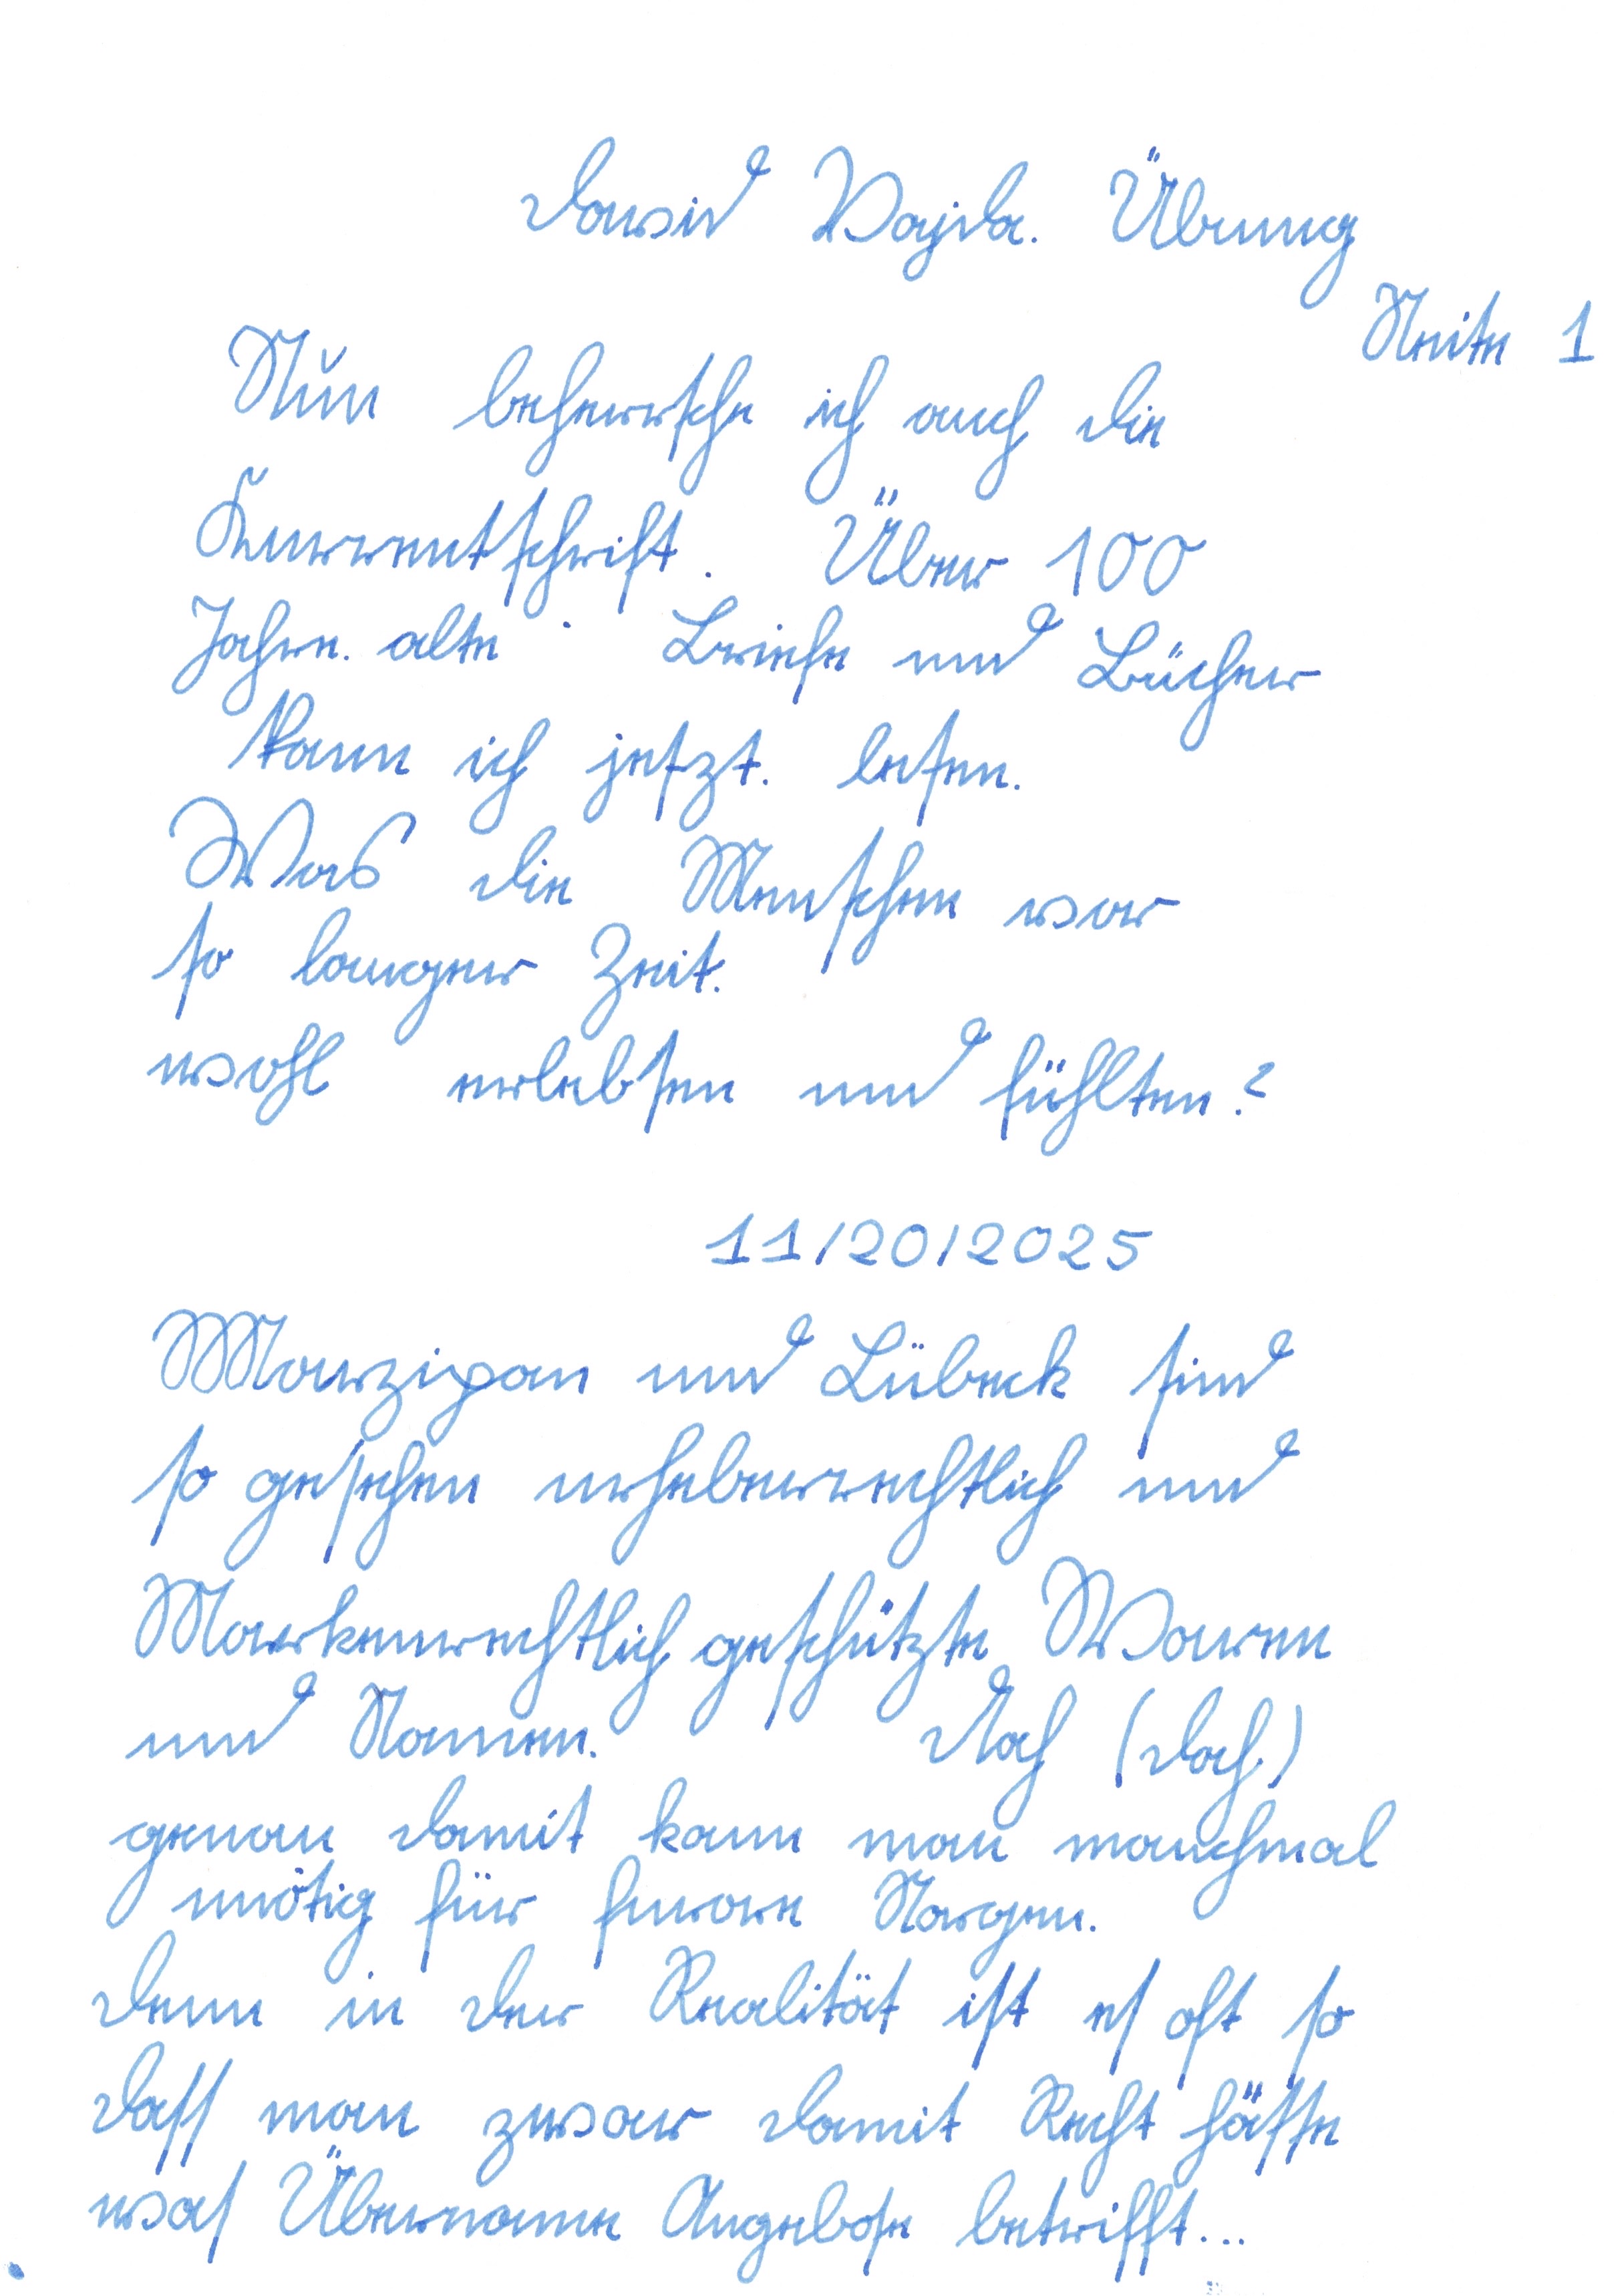 David Vajda. Übung
Seite 1
Nun beherrsche ich auch die
Kurrentschrift. Über 100
Jahre. alte Briefe und Bücher
kann ich jetzt. lesen.
Was die Menschen vor
so langer Zeit.
wohl erlebten und fühlten?
11/20/2025
Marzipan und Lübeck sind
so gesehen urheberrechtlich und
Markenrechtlich geschützte Waren
und Namen. Doch (doch.)
genau damit kann man manchmal
unötig für furore sorgen.
denn in der Realität ist es oft so
dass man zwar damit Recht hätte
was Übername Angebote betrifft...